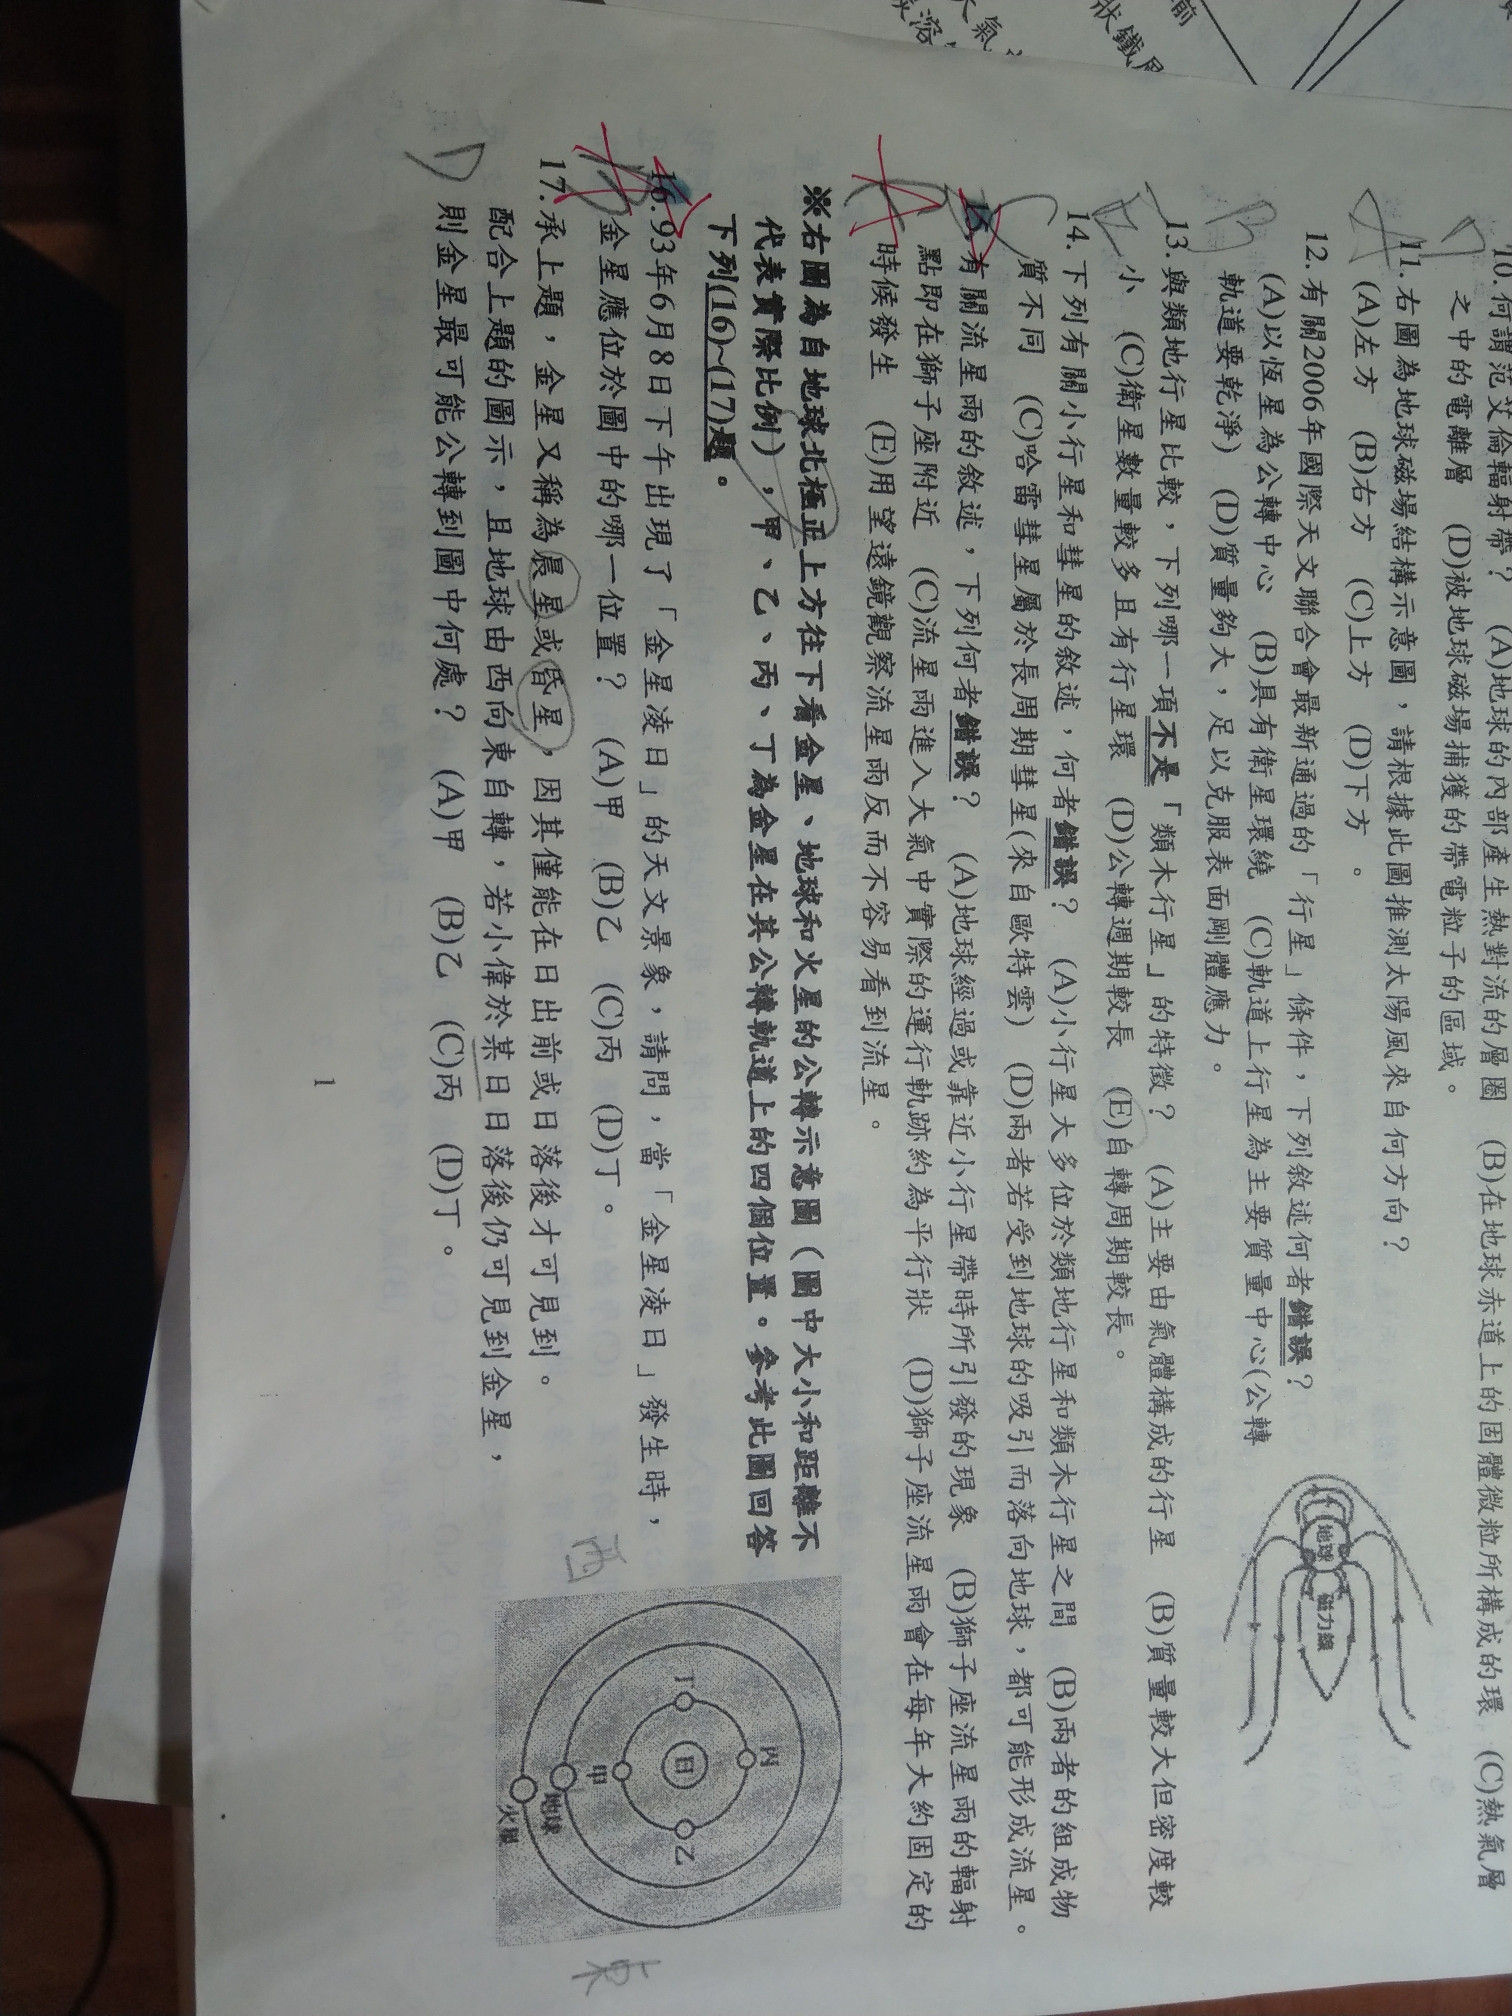 10.何謂范艾倫輻射帶? (A)地球的內部產生熱對流的層圈 (B)在地球赤道上的固體微粒所構成的環 (C)熱氣層
之中的電離層 (D)被地球磁場捕獲的帶電粒子的區域。
11.右圖為地球磁場結構示意圖,請根據此圖推測太陽風來自何方向?
(A)左方 (B)右方 (C)上方 (D)下方 。
12.有關2006年國際天文聯合會最新通過的「行星」條件,下列敘述何者錯誤?
(A)以恆星為公轉中心 (B)具有衛星環繞 (C)軌道上行星為主要質量中心(公轉
軌道要乾淨) (D)質量夠大,足以克服表面剛體應力。
地球
磁力線
13.與類地行星比較,下列哪一項不是「類木行星」的特徵? (A)主要由氣體構成的行星 (B)質量較大但密度較
小 (C)衛星數量較多且有行星環 (D)公轉週期較長 (E)自轉周期較長。
14.下列有關小行星和彗星的敘述,何者錯誤? (A)小行星大多位於類地行星和類木行星之間 (B)兩者的組成物
質不同 (C)哈雷彗星屬於長周期彗星(來自歐特雲) (D)兩者若受到地球的吸引而落向地球,都可能形成流星。
15.有關流星雨的敘述,下列何者錯誤? (A)地球經過或靠近小行星帶時所引發的現象 (B)獅子座流星雨的輻射
點即在獅子座附近 (C)流星雨進入大氣中實際的運行軌跡約為平行狀 (D)獅子座流星雨會在每年大約固定的
時候發生 (E)用望遠鏡觀察流星雨反而不容易看到流星。
※右圖為自地球北極正上方往下看金星、地球和火星的公轉示意圖(圖中大小和距離不
代表實際比例),甲、乙、丙、丁為金星在其公轉軌道上的四個位置。參考此圖回答
下列(16)~(17)題。
16.93年6月8日下午出現了「金星凌日」的天文景象,請問,當「金星凌日」發生時,
金星應位於圖中的哪一位置? (A)甲 (B)乙 (C)丙 (D)丁。
17.承上題,金星又稱為晨星或昏星,因其僅能在日出前或日落後才可見到。
配合上題的圖示,且地球由西向東自轉,若小偉於某日日落後仍可見到金星,
則金星最可能公轉到圖中何處? (A)甲 (B)乙 (C)丙 (D)丁。
丙
丁
日
乙
甲
地球
火星
西
東
D
A
B
C
A
D
1